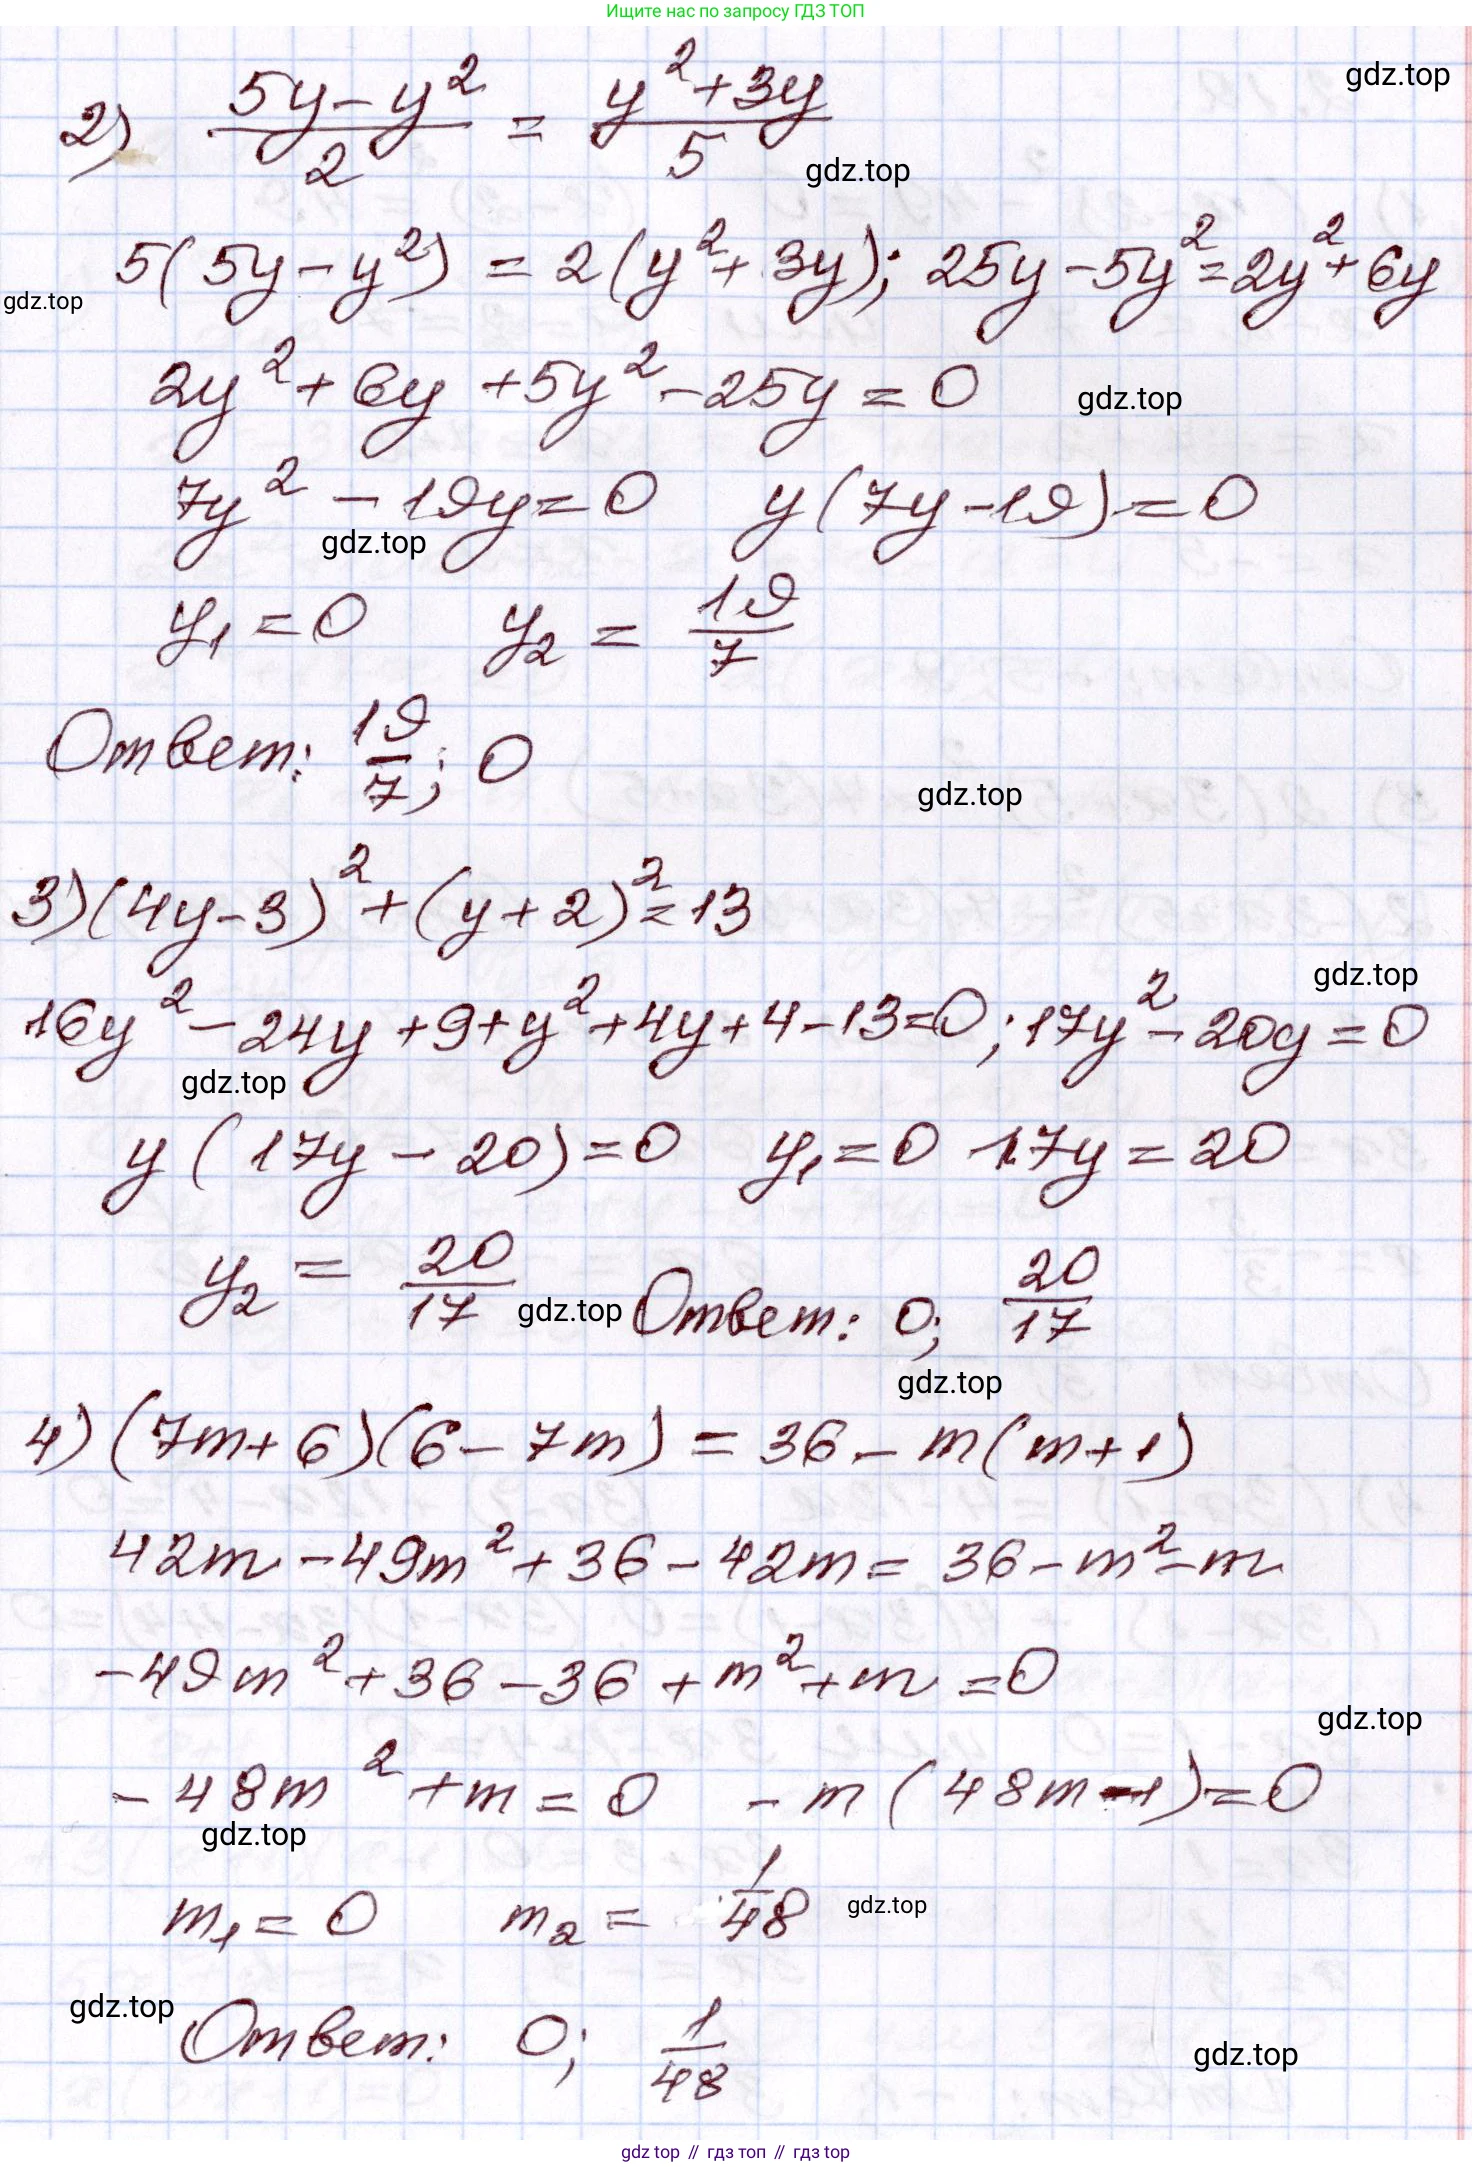 Ищите нас по запросу ГДЗ ТОП
gdz.top
2) (5y-y²)/2 = (y²+3y)/5
gdz.top
5(5y-y²) = 2(y²+3y); 25y-5y²=2y²+6y
gdz.top
2y²+6y+5y²-25y=0
gdz.top
7y²-19y=0 y(7y-19)=0
gdz.top
y₁=0 y₂=19/7
Ответ: 19/7; 0
gdz.top
3)(4y-3)²+(y+2)²=13
gdz.top
16y²-24y+9+y²+4y+4-13=0; 17y²-20y=0
gdz.top
y(17y-20)=0 y₁=0 17y=20
y₂=20/17 gdz.top Ответ: 0; 20/17
gdz.top
4)(7m+6)(6-7m)=36-m(m+1)
42m-49m²+36-42m=36-m²-m
-49m²+36-36+m²+m=0
gdz.top
-48m²+m=0 -m(48m-1)=0
gdz.top
m₁=0 m₂=1/48 gdz.top
gdz.top
Ответ: 0; 1/48
gdz.top
gdz top // гдз топ // гдз top